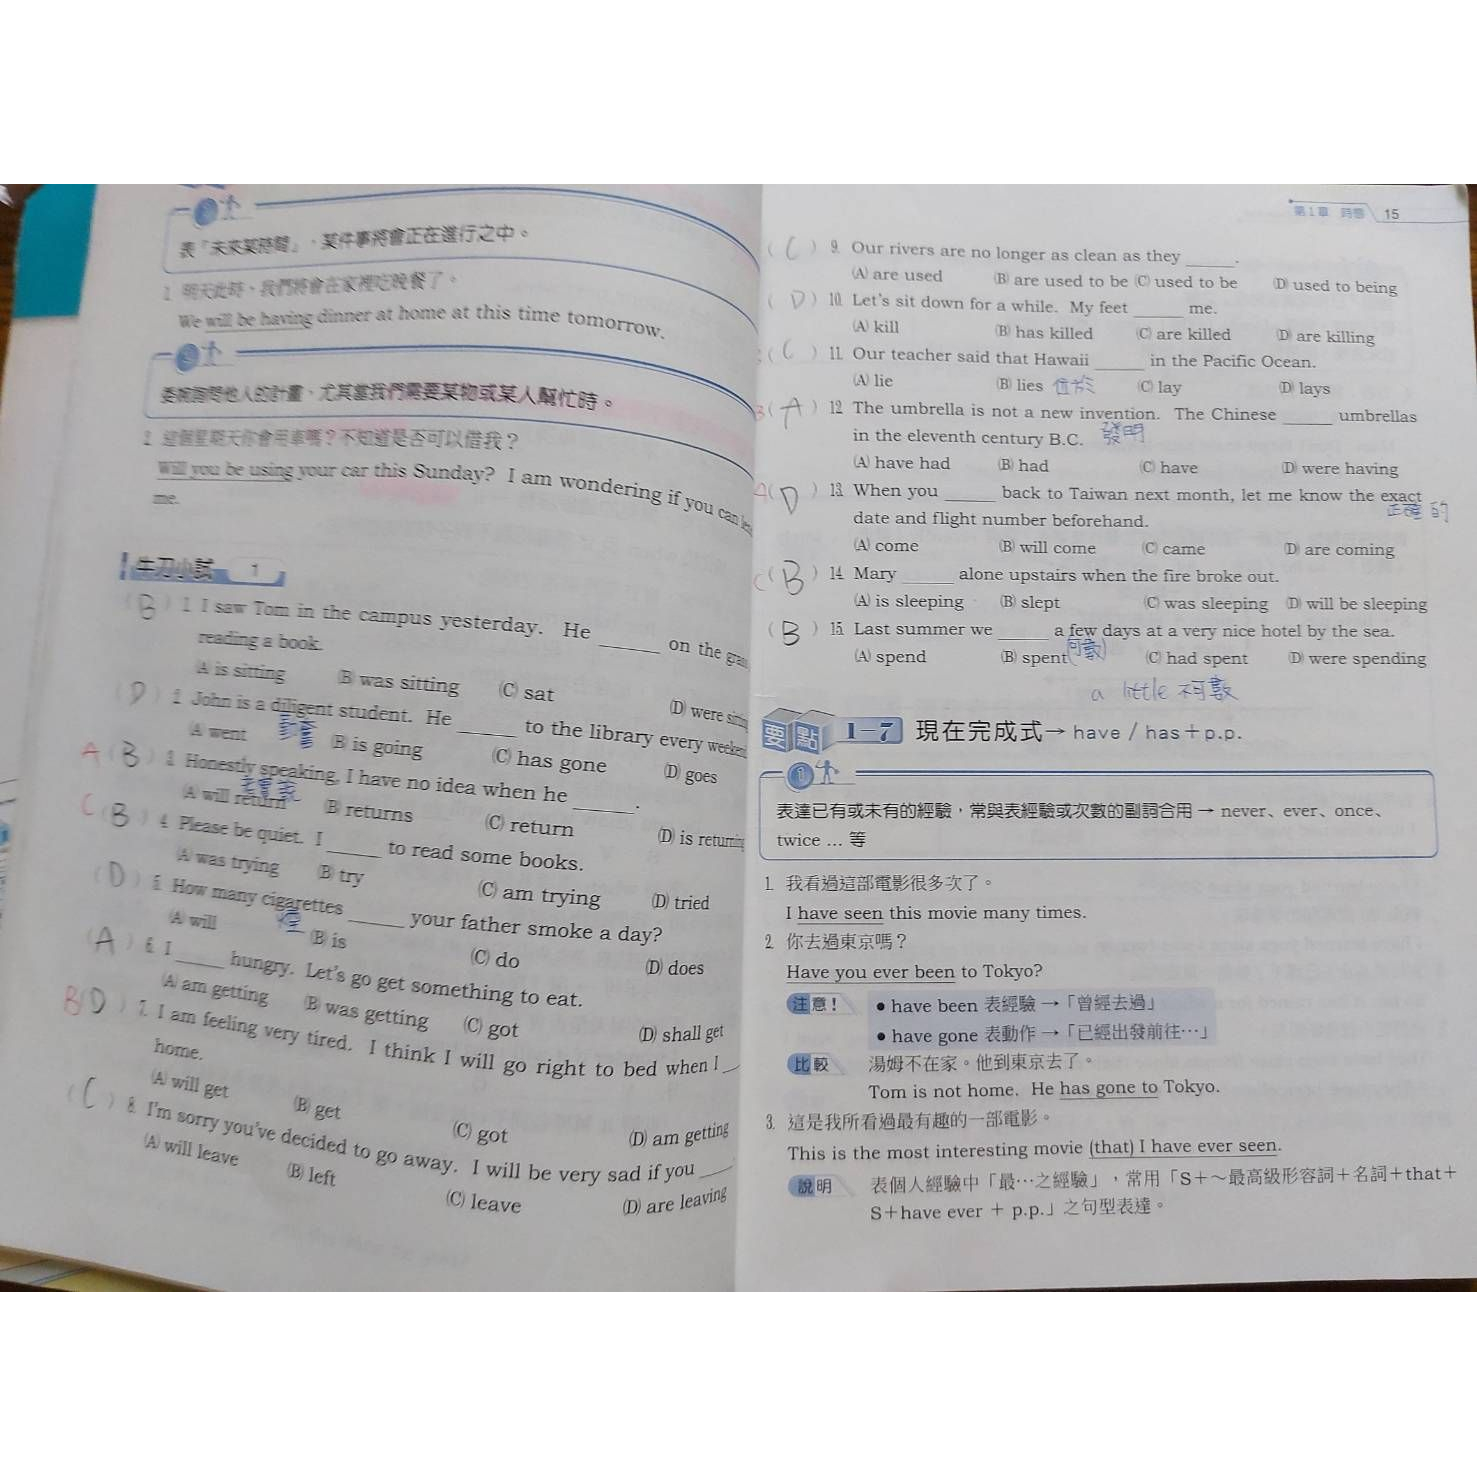 表「未來某時間」，某件事將會正在進行之中。
1. 明天此時，我們將會在家裡吃晚餐了。
We will be having dinner at home at this time tomorrow.
委婉詢問他人的計畫，尤其當我們需要某物或某人幫忙時。
1. 這個星期天你會用車嗎？不知道是否可以借我？
Will you be using your car this Sunday? I am wondering if you can
me.
牛刀小試 1
(B) 1. I saw Tom in the campus yesterday. He ______ on the grass
reading a book.
(A) is sitting (B) was sitting (C) sat (D) were sitting
(D) 2. John is a diligent student. He ______ to the library every weekend
勤奮
(A) went (B) is going (C) has gone (D) goes
A (B) 3. Honestly speaking, I have no idea when he ______.
老實說
(A) will return (B) returns (C) return (D) is returning
C (B) 4. Please be quiet. I ______ to read some books.
(A) was trying (B) try (C) am trying (D) tried
(D) 5. How many cigarettes ______ your father smoke a day?
菸
(A) will (B) is (C) do (D) does
(A) 6. I ______ hungry. Let's go get something to eat.
(A) am getting (B) was getting (C) got (D) shall get
B (D) 7. I am feeling very tired. I think I will go right to bed when I
home.
(A) will get (B) get (C) got (D) am getting
(C) 8. I'm sorry you've decided to go away. I will be very sad if you
(A) will leave (B) left (C) leave (D) are leaving
第1章 時態 15
(C) 9. Our rivers are no longer as clean as they ______.
(A) are used (B) are used to be (C) used to be (D) used to being
(D) 10. Let's sit down for a while. My feet ______ me.
(A) kill (B) has killed (C) are killed (D) are killing
(C) 11. Our teacher said that Hawaii ______ in the Pacific Ocean.
(A) lie (B) lies 位於 (C) lay (D) lays
B (A) 12. The umbrella is not a new invention. The Chinese ______ umbrellas
in the eleventh century B.C. 發明
(A) have had (B) had (C) have (D) were having
A (D) 13. When you ______ back to Taiwan next month, let me know the exact
正確的
date and flight number beforehand.
(A) come (B) will come (C) came (D) are coming
C (B) 14. Mary ______ alone upstairs when the fire broke out.
(A) is sleeping (B) slept (C) was sleeping (D) will be sleeping
(B) 15. Last summer we ______ a few days at a very nice hotel by the sea.
可數
(A) spend (B) spent (C) had spent (D) were spending
a little 不可數
要點 1-7 現在完成式→ have / has＋p.p.
1
表達已有或未有的經驗，常與表經驗或次數的副詞合用 → never、ever、once、
twice … 等
1. 我看過這部電影很多次了。
I have seen this movie many times.
2. 你去過東京嗎？
Have you ever been to Tokyo?
注意！ ● have been 表經驗 →「曾經去過」
● have gone 表動作 →「已經出發前往…」
比較 湯姆不在家。他到東京去了。
Tom is not home. He has gone to Tokyo.
3. 這是我所看過最有趣的一部電影。
This is the most interesting movie (that) I have ever seen.
說明 表個人經驗中「最…之經驗」，常用「S＋～最高級形容詞＋名詞＋that＋
S＋have ever + p.p.」之句型表達。